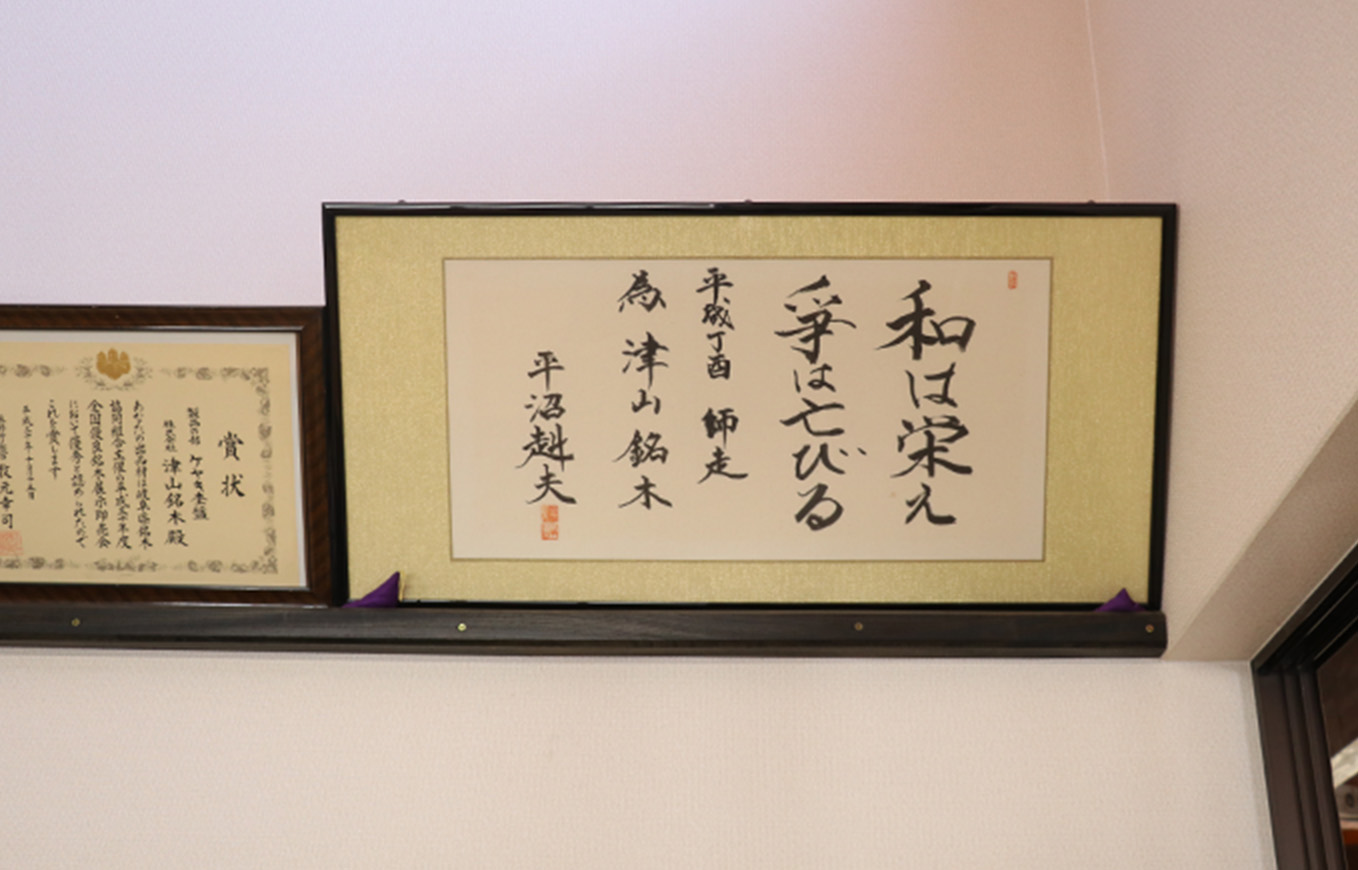 和は栄え
爭は亡びる
平成丁酉 師走
為 津山銘木
平沼赳夫
賞状
製品の部 ケヤキ盤
株式会社 津山銘木殿
あなたの出品材は岐阜県銘木
協同組合主催の平成三十年度
全国優良銘木展示即売会
において優秀と認められたので
これを賞します